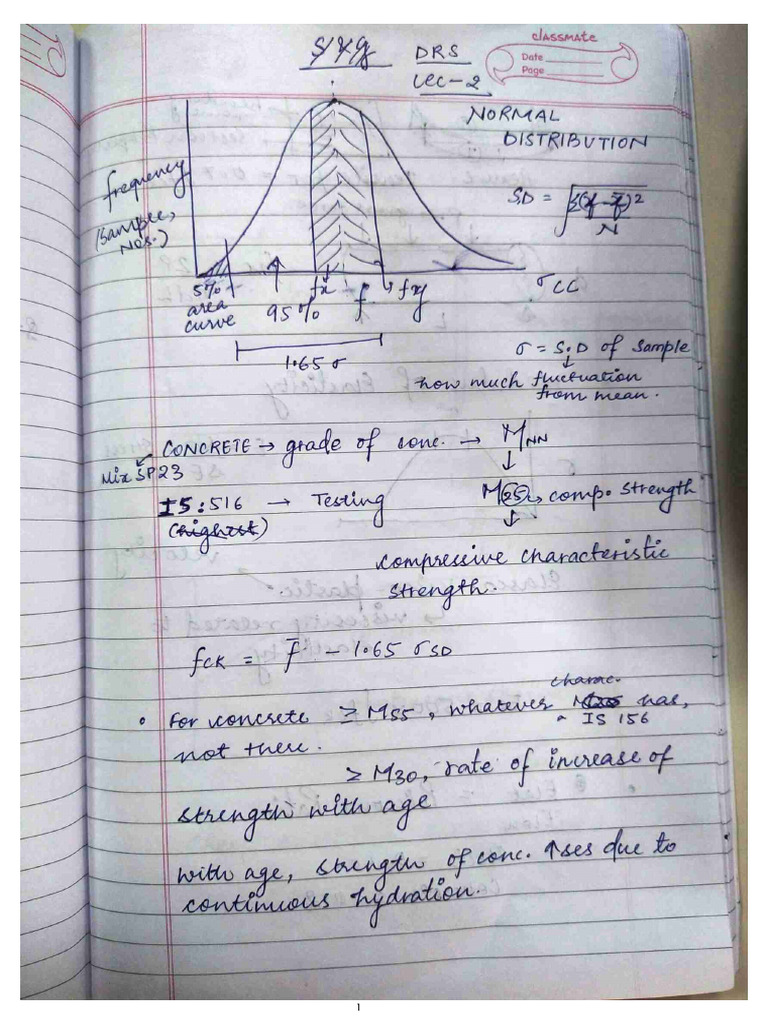 5/8/19
DRS
LEC-2
classmate
Date
Page
NORMAL
DISTRIBUTION
frequency
(Sample,
Nos.)
S.D = √Σ(f - f̄)² / N
5%
area
curve
95%
fx
f̄
fy
σcc
1.65 σ
σ = S.D of sample
↓
how much fluctuation
from mean.
CONCRETE → grade of conc. → MNN
Mix SP23
↓
IS: 516 → Testing
M25 → comp. strength
(highest)
↓
compressive characteristic
strength.
fck = f̄ - 1.65 σSD
• For concrete ≥ M55, whatever charac. IS 156 has,
not there.
≥ M30, rate of increase of
strength with age
with age, strength of conc. ↑ses due to
continuous hydration.
1